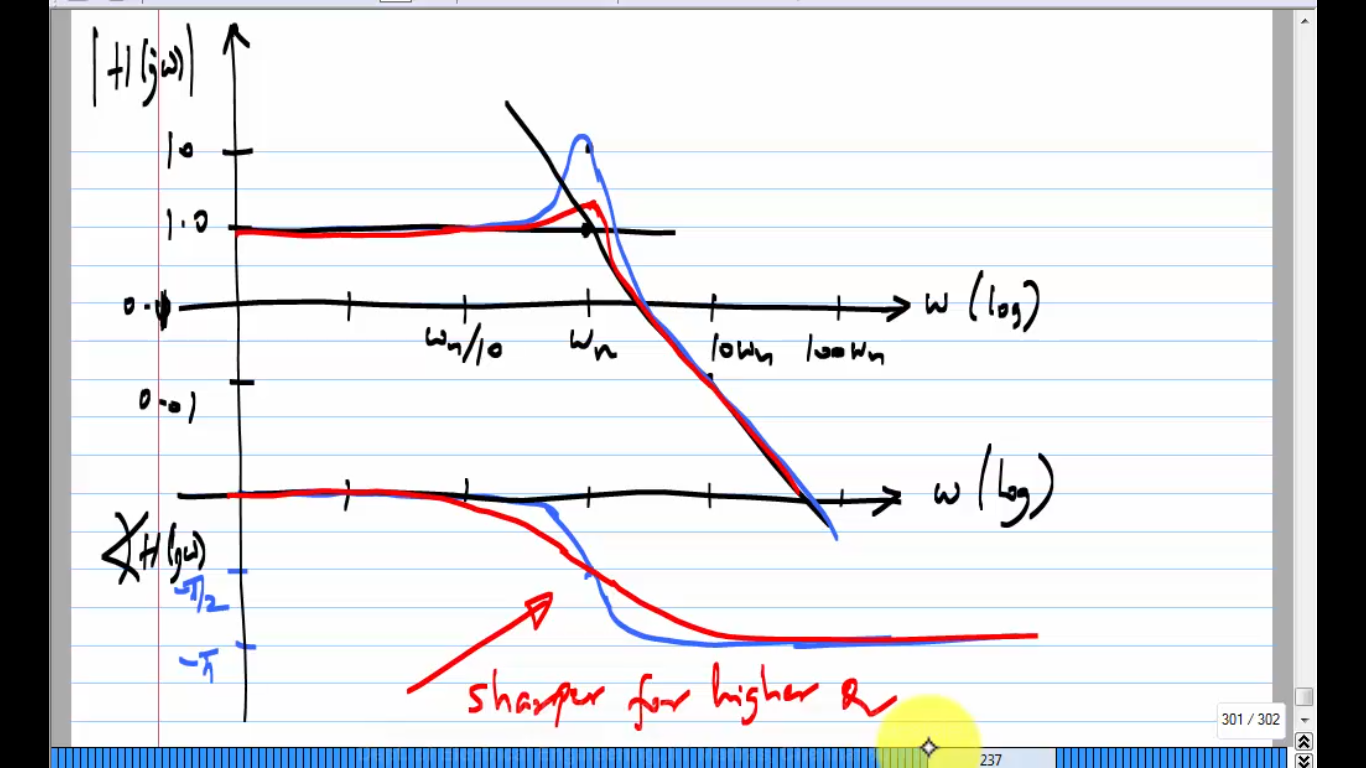 |H(jω)|
10
1.0
0.1
ω (log)
ωn/10 ωn 10ωn 100ωn
0.01
ω (log)
∠H(jω)
-π/2
-π
sharper for higher Q
301 / 302
237